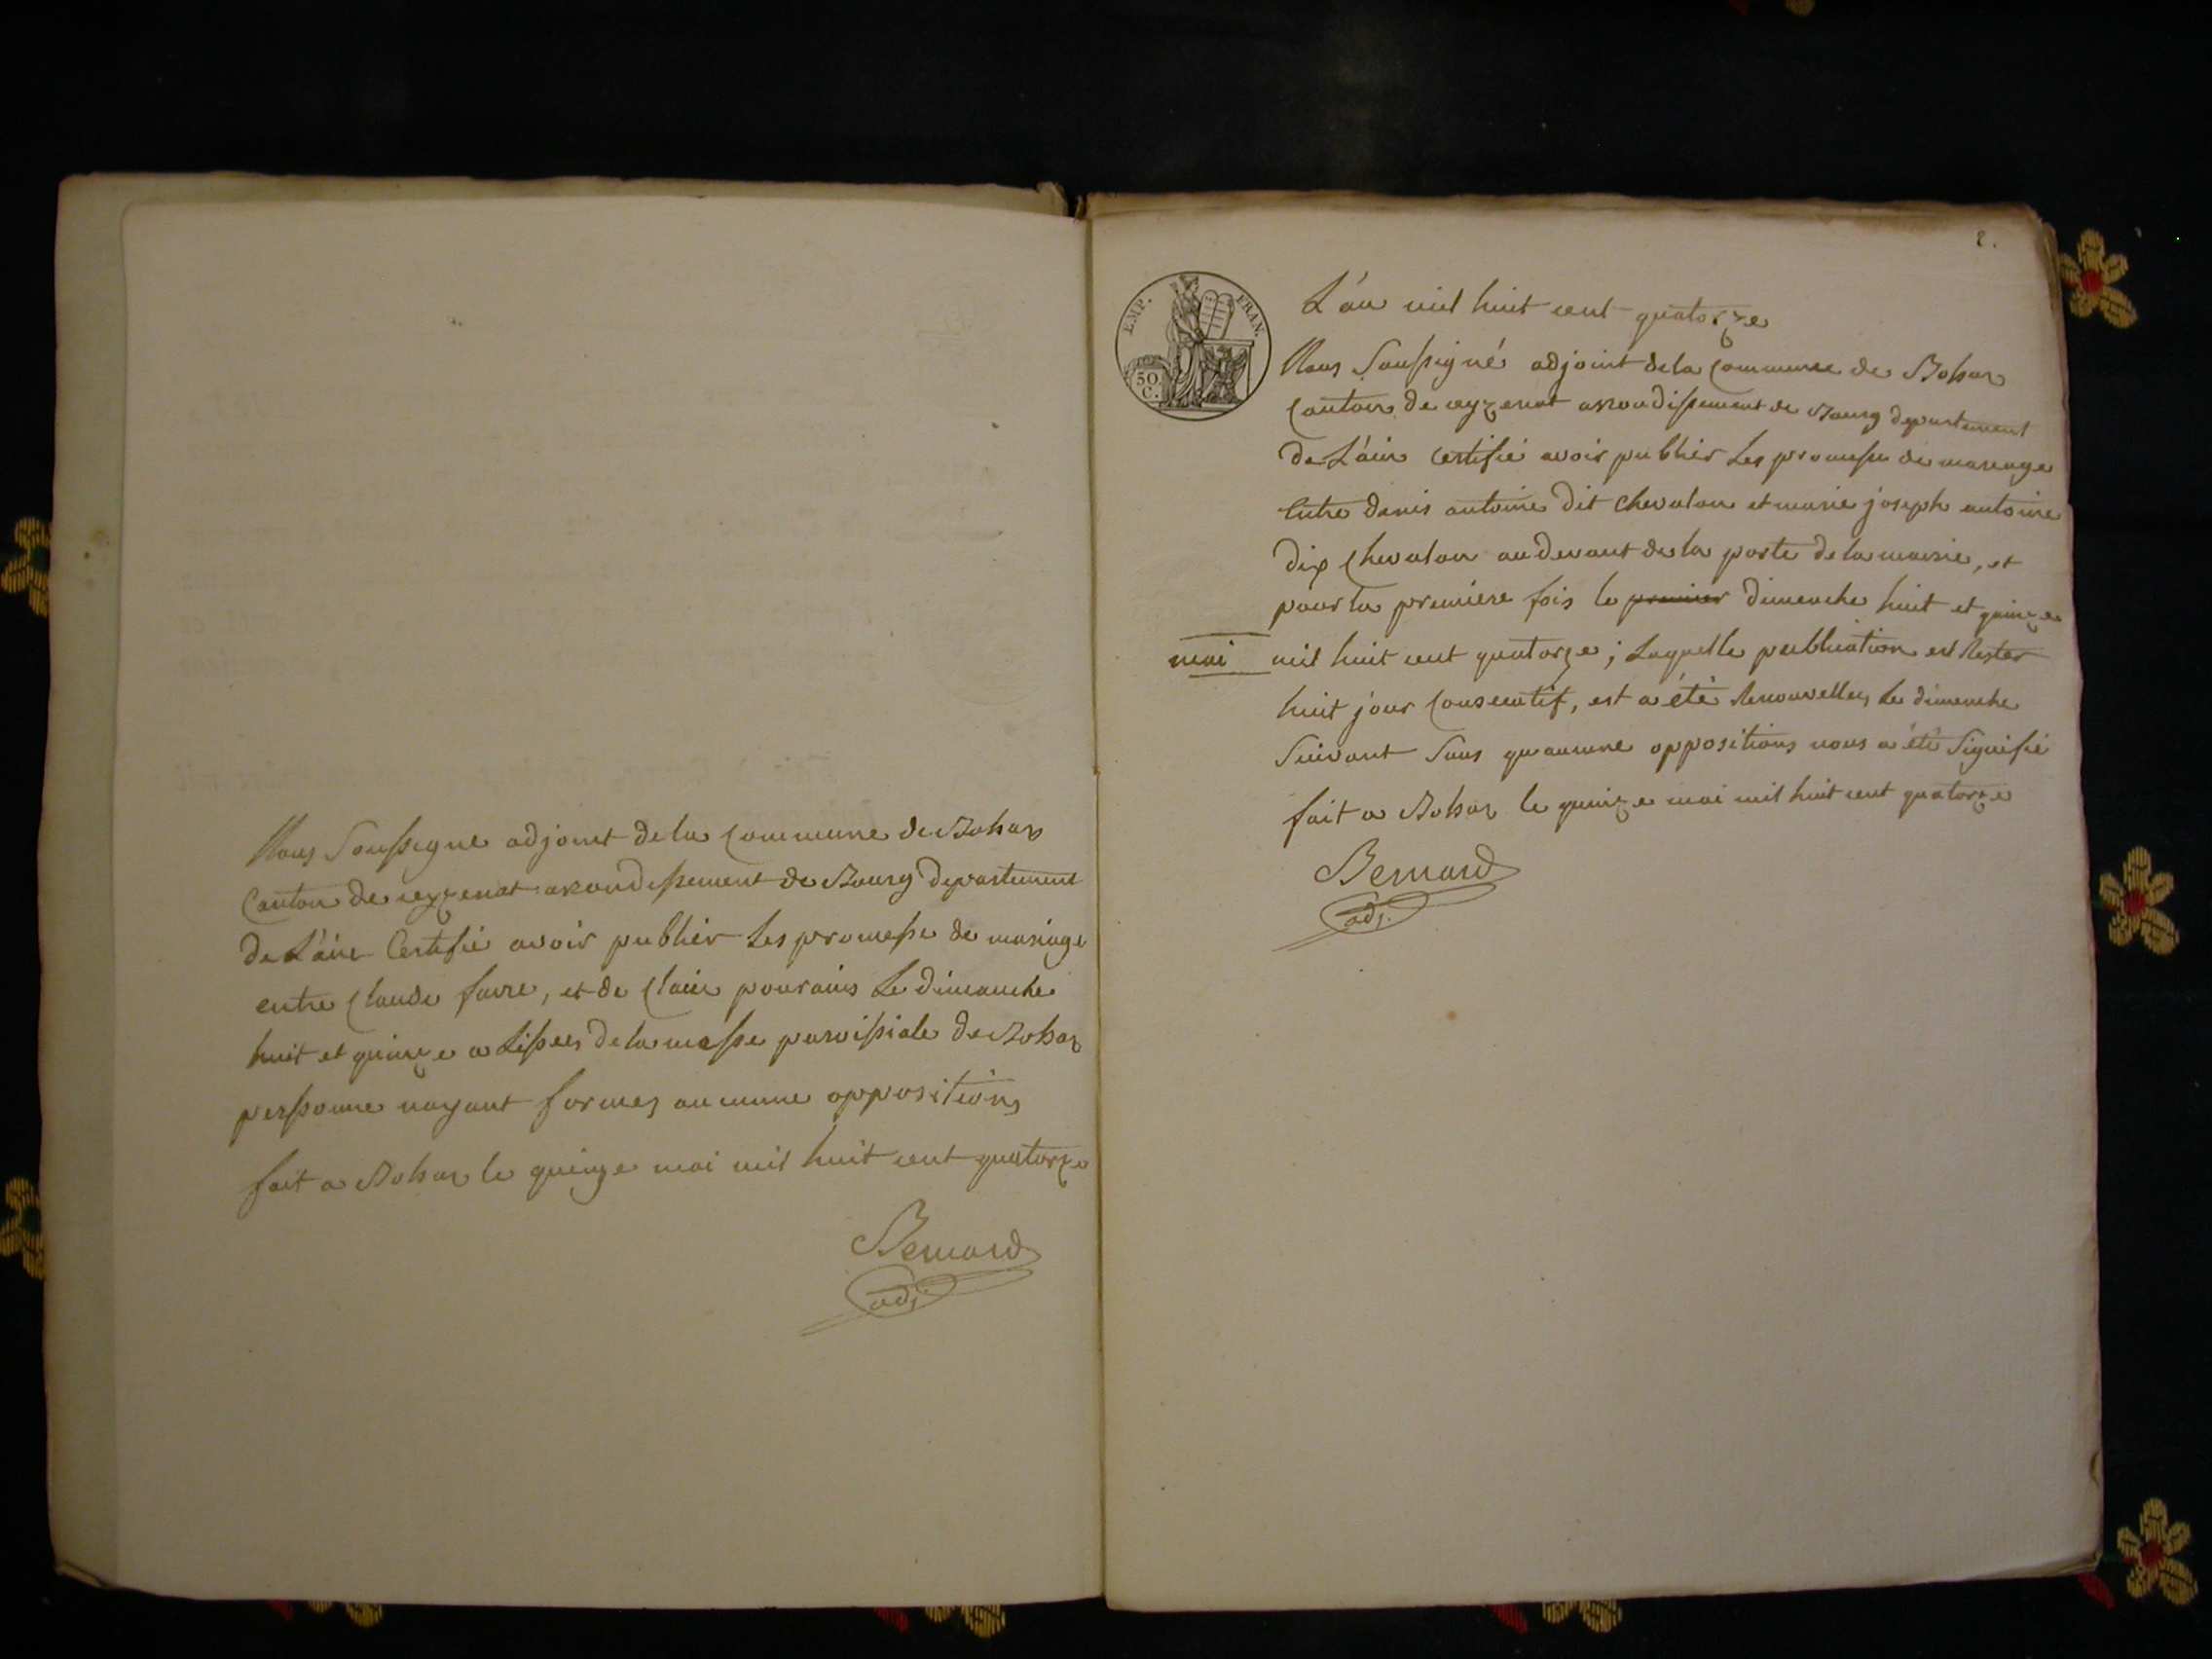 Nous Soussigne adjoint de la Commune de Bohas
Canton de ceyzeriat arondissement de Bourg departement
de L'ain Certifié avoir publier les promesse de mariage
entre Claude favre, et de Claire pourains Le dimanche
huit et quinze a Lissues de la messe paroissiale de Bohas
perssonne nayant formez aucunne oppositions
fait a Bohas le quinze mai mil huit cent quatorze
Bernard
adj.
2.
EMP. FRAN.
50 C.
L'an mil huit cent quatorze
Nous Soussigné adjoint de la Commune de Bohas
Canton de ceyzeriat arondissement de Bourg departement
de L'ain Certifié avoir publier Les promesse de mariage
Entre denis antoine dit Chevalon et marie joseph antoine
dix Chevalon au devant de la porte de la mairie, et
pour la premiere fois le premier dimenche huit et quinze
mai mil huit cent quatorze; Laquelle publication est Rester
huit jour Consecutif, est a été Renouvellez Le dimenche
Suivant Sans qu'aucune oppositions nous a été Signifié
fait a Bohas le quinze mai mil huit cent quatorze
Bernard
adj.